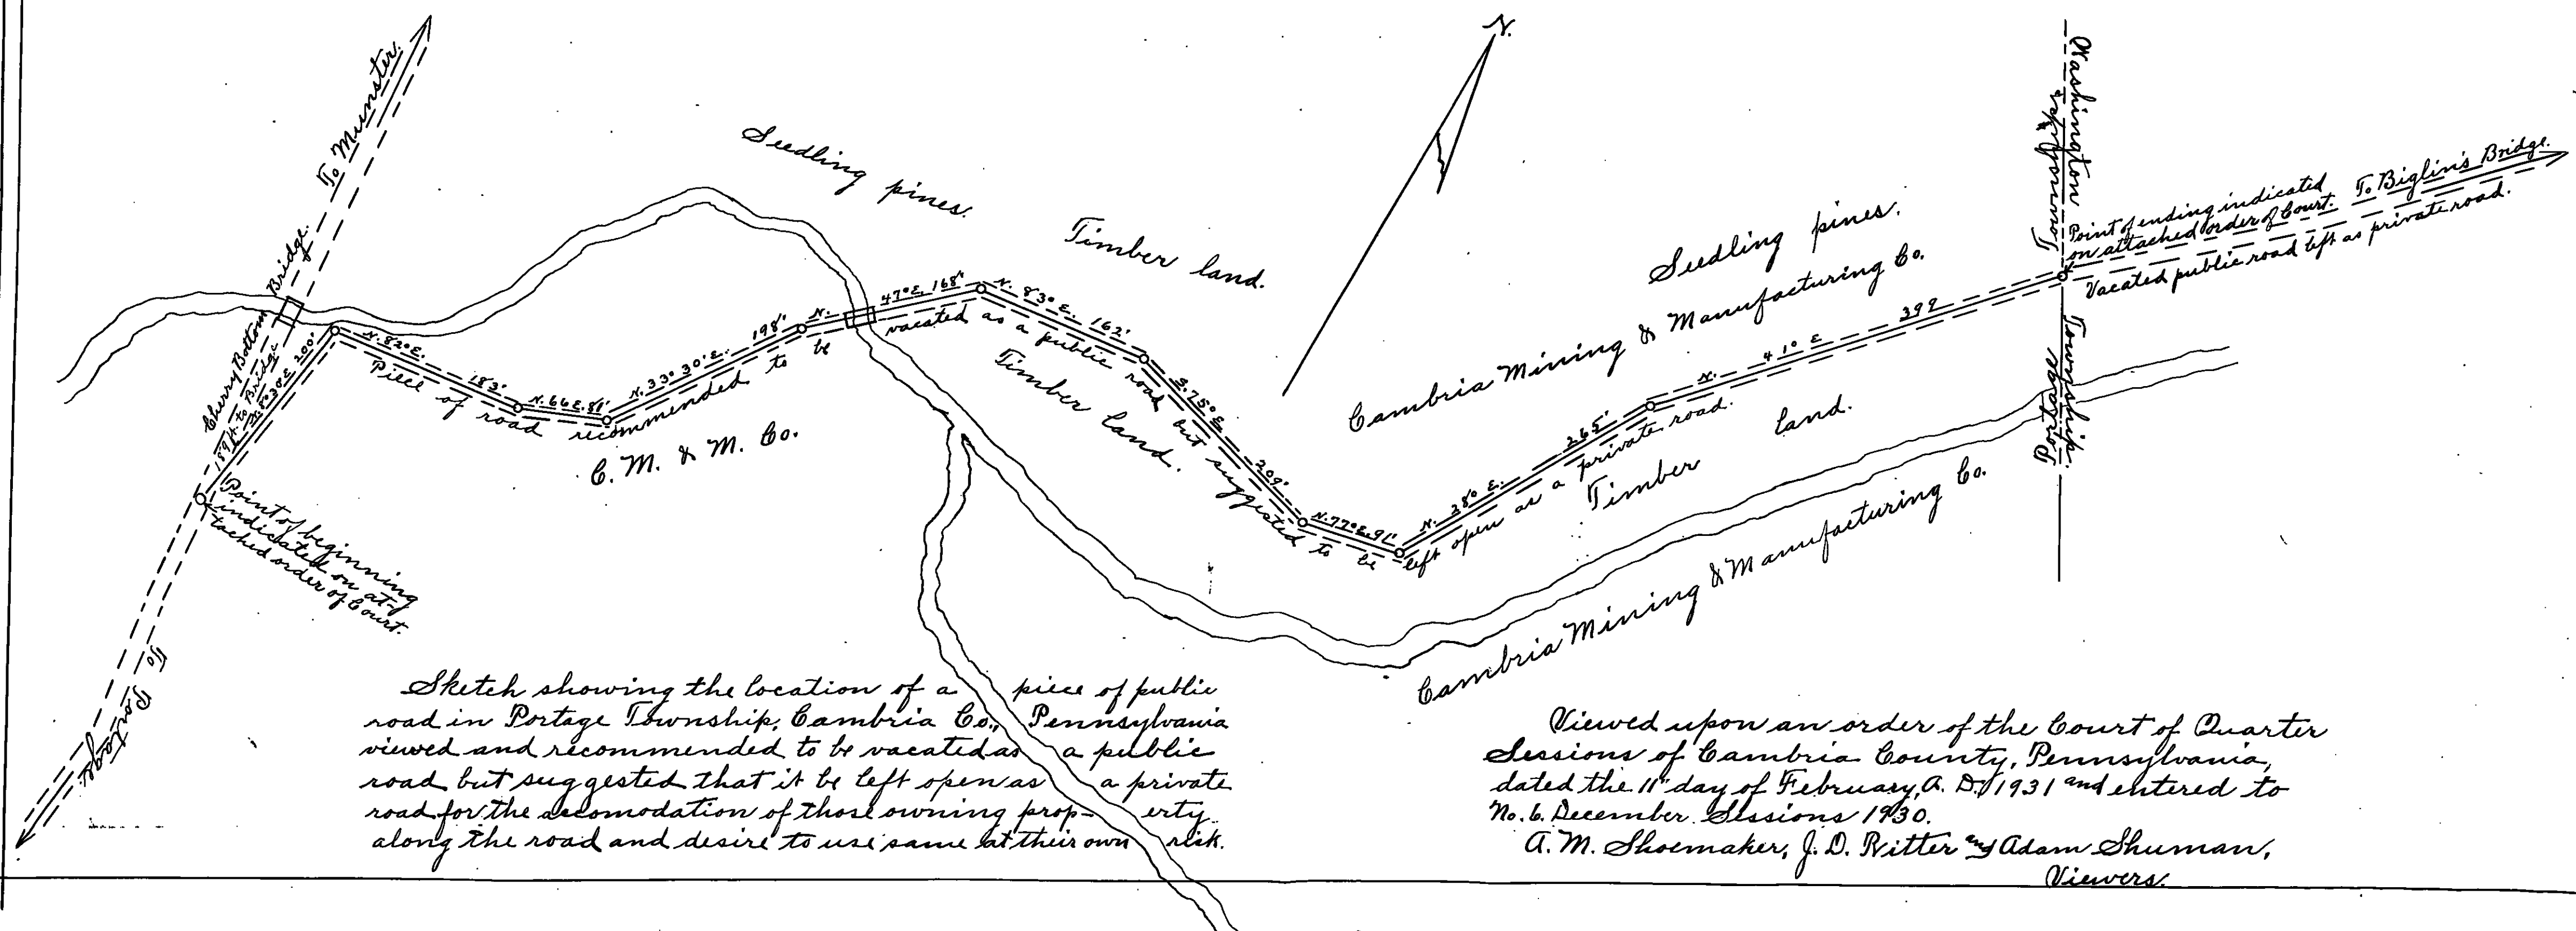 To Munster.
Bridge.
Cherry Bottom
189 ft. to Bridge
N. 8° 30' E. 200'
Point of beginning
indicated on at-
tached order of Court.
To Portage.
N. 82° E. 183'
N. 66 E. 81'
N. 33° 30' E. 198'
N. 47° E. 168'
N. 83° E. 162'
S. 75° E. 209'
N. 77° E. 91'
N. 38° E. 265'
N. 41° E 392
Piece of road recommended to be vacated as a public road but suggested to be left open as a private road.
C. M. & M. Co.
Seedling pines.
Timber land.
Timber land.
N.
Seedling pines.
Cambria Mining & Manufacturing Co.
Timber land.
Cambria Mining & Manufacturing Co.
Washington
Township
Portage
Township.
Point of ending indicated
on attached order of Court.
To Biglin's Bridge.
Vacated public road left as private road.
Sketch showing the location of a piece of public
road in Portage Township, Cambria Co., Pennsylvania
viewed and recommended to be vacated as a public
road but suggested that it be left open as a private
road for the accomodation of those owning prop- erty
along the road and desire to use same at their own risk.
Viewed upon an order of the Court of Quarter
Sessions of Cambria County, Pennsylvania,
dated the 11" day of February, A. D. 1931 and entered to
No. 6. December Sessions 1930.
A. M. Shoemaker, J. D. Ritter and Adam Shuman,
Viewers.